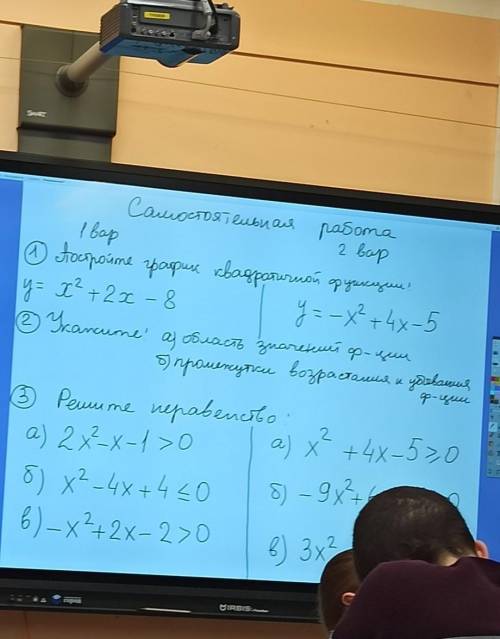 Самостоятельная работа
1 вар
2 вар
① Постройте график квадратичной функции:
y = x² + 2x - 8
y = -x² + 4x - 5
② Укажите: а) область значений ф-ции
б) промежутки возрастания и убывания
ф-ции
③ Решите неравенство:
а) 2x² - x - 1 > 0
б) x² - 4x + 4 ≤ 0
в) -x² + 2x - 2 > 0
а) x² + 4x - 5 ≥ 0
б) -9x² +
в) 3x²
IRBIS